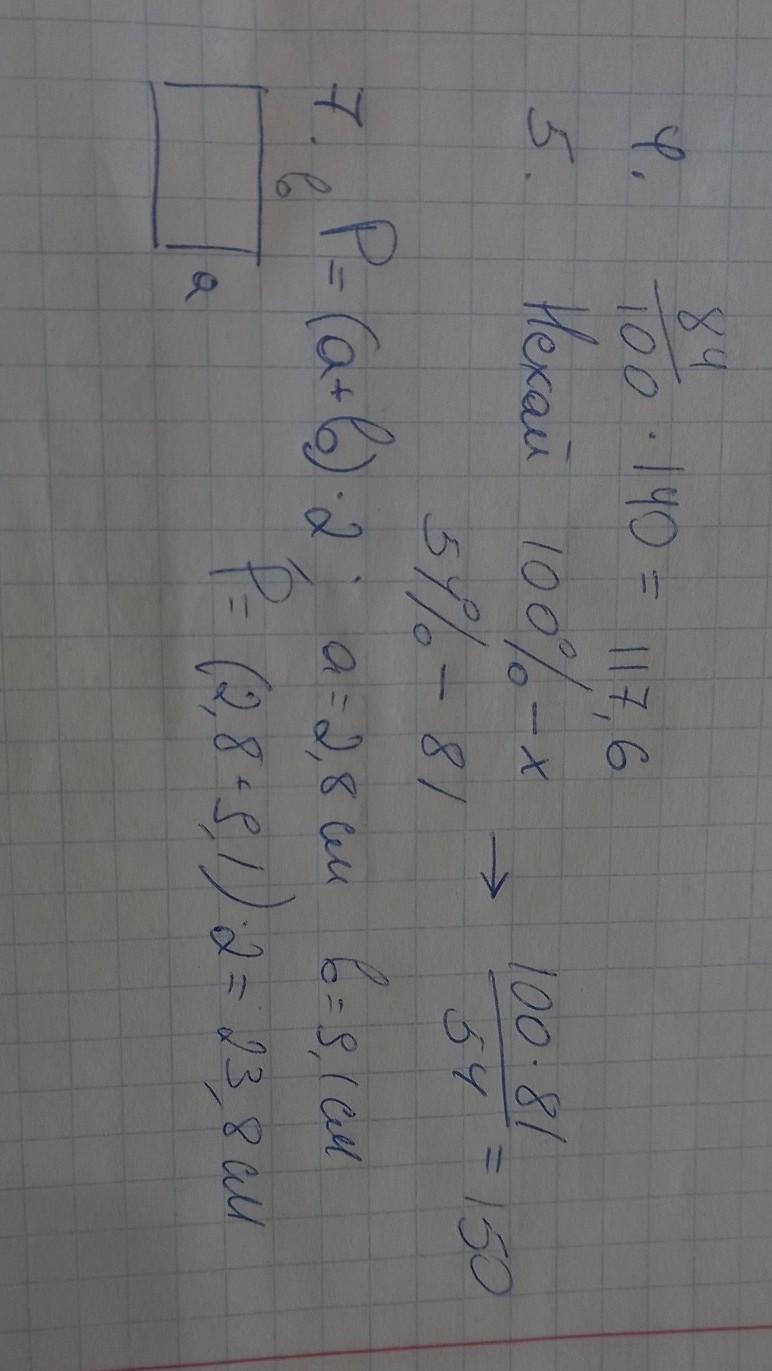 4. 84/100 · 140 = 117,6
5. Нехай 100% – x
54% – 81 → 100·81/54 = 150
7. P = (a + b) · 2; a = 2,8 см b = 9,1 см
b
a
P = (2,8 + 9,1) · 2 = 23,8 см